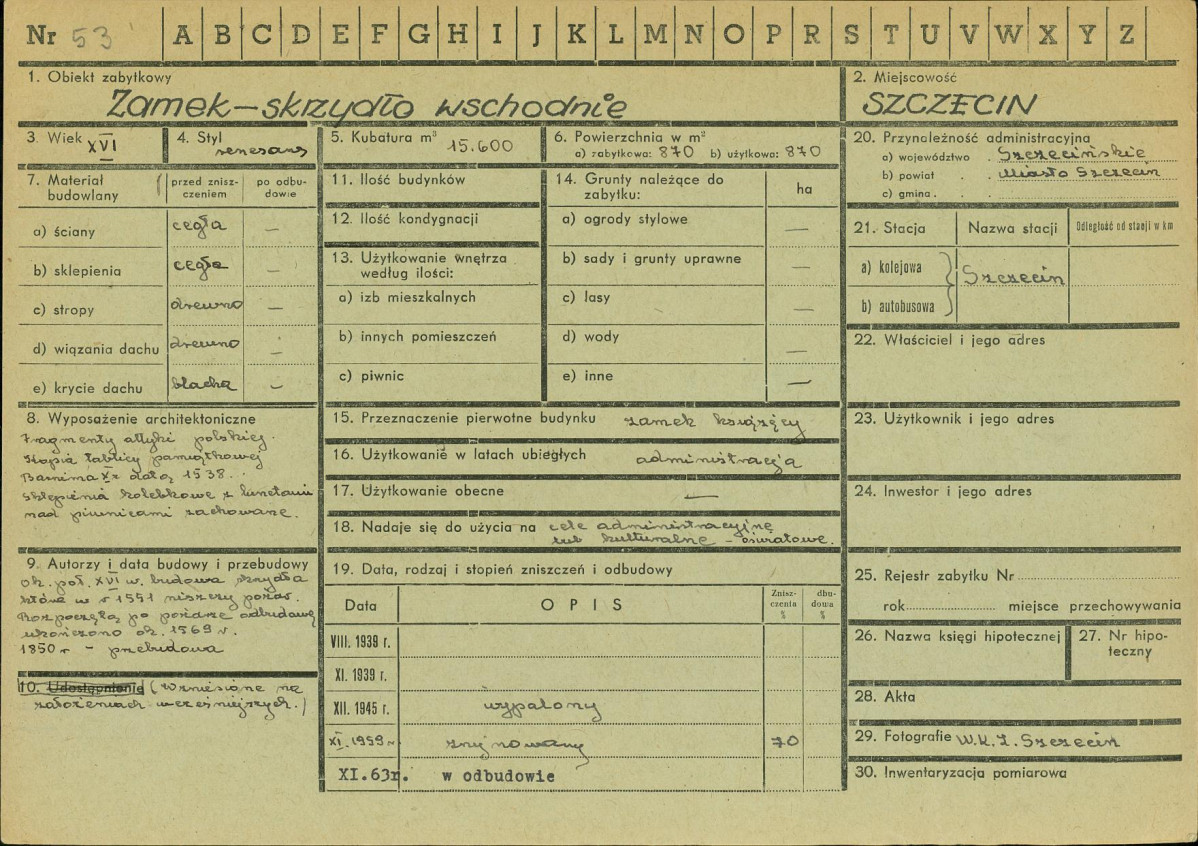 Nr 53 A B C D E F G H I J K L M N O P R S T U V W X Y Z
1. Obiekt zabytkowy
Zamek – skrzydło wschodnie
2. Miejscowość
SZCZECIN
3. Wiek XVI
4. Styl renesans
5. Kubatura m³ 15.600
6. Powierzchnia w m²
a) zabytkowa: 870 b) użytkowa: 870
20. Przynależność administracyjna
a) województwo . Szczecińskie
b) powiat . . Miasto Szczecin
c) gmina . .
7. Materiał budowlany
przed znisz-
czeniem
po odbu-
dowie
a) ściany cegła —
b) sklepienia cegła —
c) stropy drewno —
d) wiązania dachu drewno —
e) krycie dachu blacha —
11. Ilość budynków
12. Ilość kondygnacji
13. Użytkowanie wnętrza
według ilości:
a) izb mieszkalnych
b) innych pomieszczeń
c) piwnic
14. Grunty należące do
zabytku:
ha
a) ogrody stylowe —
b) sady i grunty uprawne —
c) lasy
d) wody —
e) inne —
21. Stacja Nazwa stacji Odległość od stacji w km
a) kolejowa
b) autobusowa
Szczecin
22. Właściciel i jego adres
8. Wyposażenie architektoniczne
Fragmenty attyki polskiej.
Kopia tablicy pamiątkowej
Barnima XI z datą 1538.
Sklepienia kolebkowe z lunetami
nad piwnicami zachowane.
15. Przeznaczenie pierwotne budynku zamek książęcy
16. Użytkowanie w latach ubiegłych administracja
17. Użytkowanie obecne —
18. Nadaje się do użycia na cele administracyjne
lub kulturalne – oświatowe.
23. Użytkownik i jego adres
24. Inwestor i jego adres
9. Autorzy i data budowy i przebudowy
ok. poł. XVI w. budowa skrzydła
które w r 1551 niszczy pożar.
Rozpoczętą po pożarze odbudowę
ukończono ok. 1569 r.
1850 r – przebudowa
10. Udostępnienie (Wzniesione na
założeniach wcześniejszych.)
19. Data, rodzaj i stopień zniszczeń i odbudowy
Data OPIS
Znisz-
czenia
%
dbu-
dowa
%
VIII. 1939 r.
XI. 1939 r.
XII. 1945 r. wypalony
XI. 1959 r. zrujnowany 70
XI.63r. w odbudowie
25. Rejestr zabytku Nr
rok miejsce przechowywania
26. Nazwa księgi hipotecznej
27. Nr hipo-
teczny
28. Akta
29. Fotografie W.K.Z. Szczecin
30. Inwentaryzacja pomiarowa